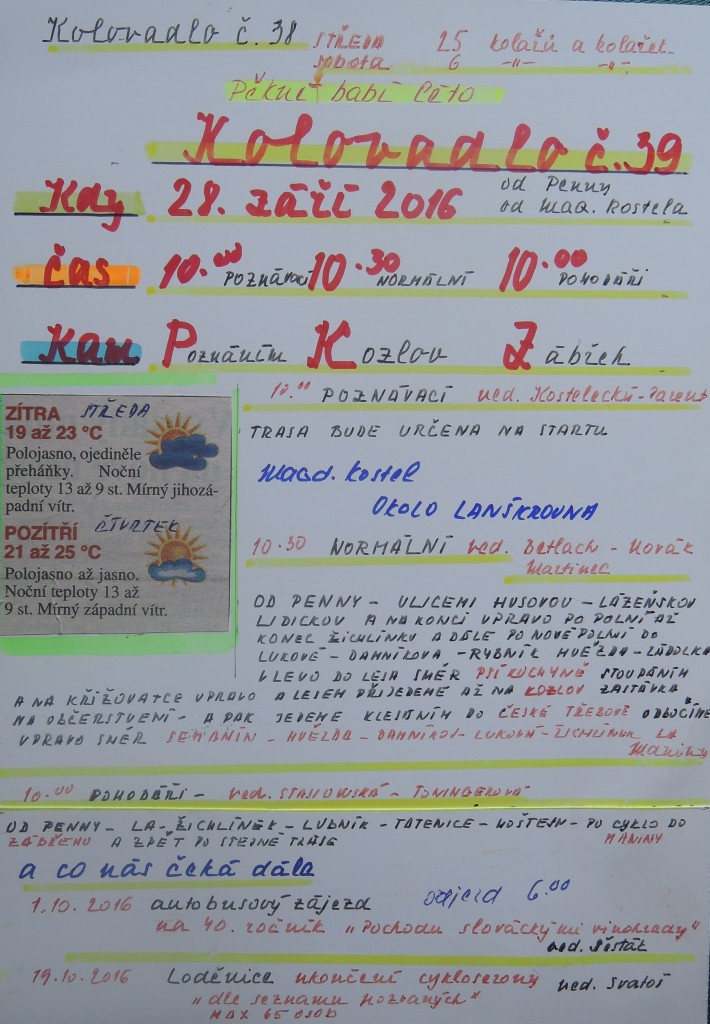 Kolovadlo č.38 STŘEDA 25 kolařů a kolařek
sobota 6 -"- -"-
Pěkné babí léto
Kolovadlo č.39
Kdy 28. září 2016 od Penny
od Mag. Kostela
čas 10.00 POZNÁVACÍ 10.30 NORMÁLNÍ 10.00 POHODÁŘI
Kam Poznáním Kozlov Zábřeh
10.00 POZNÁVACÍ ved. Kostelecký-
TRASA BUDE URČENA NA STARTU
Magd. kostel
OKOLO LANŠKROUNA
ZÍTRA STŘEDA
19 až 23 °C
Polojasno, ojediněle
přeháňky. Noční
teploty 13 až 9 st. Mírný jihozá-
padní vítr.
POZÍTŘÍ ČTVRTEK
21 až 25 °C
Polojasno až jasno.
Noční teploty 13 až
9 st. Mírný západní vítr.
10.30 NORMÁLNÍ ved. Betlach - Novák
Martinec
OD PENNY - ULICEMI HUSOVOU - LÁZEŇSKOU
LIDICKOU A NA KONCI VPRAVO PO POLNÍ AŽ
KONEC ŽICHLÍNKU A DÁLE PO NOVÉ POLNÍ DO
LUKOVÉ - DAMNÍKOVA - RYBNÍK HVĚZDA - ZÁDOLKA
VLEVO DO LESA SMĚR PSÍ KUCHYNĚ STOUPÁNÍM
A NA KŘIŽOVATCE VPRAVO A LESEM PŘIJEDEME AŽ NA KOZLOV ZASTÁVKA
NA OBČERSTVENÍ - A PAK JEDEME KLESÁNÍM DO ČESKÉ TŘEBOVÉ ODBOČÍME
VPRAVO SMĚR SEMANÍN - HVĚZDA - DAMNÍKOV - LUKOVÁ - ŽICHLÍNEK LA
Maniny
10.00 POHODÁŘI - ved. STASIOWSKÁ - TONINGEROVÁ
OD PENNY - LA - ŽICHLÍNEK - LUBNÍK - TATENICE - HOŠTEJN - PO CYKLO DO
ZÁBŘEHU A ZPĚT PO STEJNÉ TRASE MANINY
a co nás čeká dále
1.10.2016 autobusový zájezd odjezd 6.00
na 40. ročník „Pochodu slováckými vinohrady"
ved. Šesták
19.10.2016 Loděnice ukončení cyklosezony ved. Svatoš
„dle seznamu pozvaných"
MAX 65 OSOB